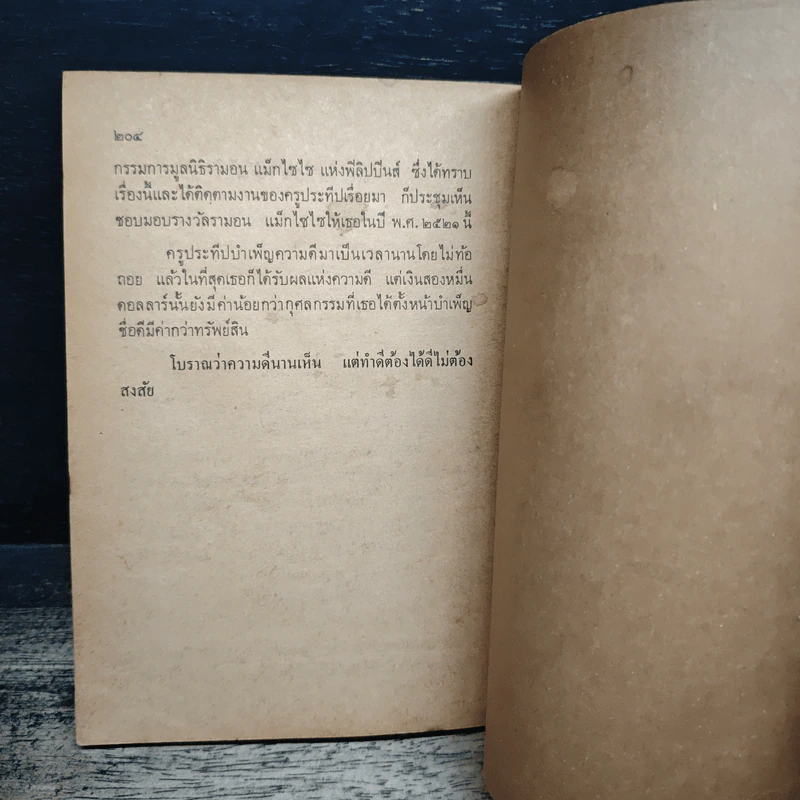 ๒๐๔
กรรมการมูลนิธิรามอน แม็กไซไซ แห่งฟิลิปปินส์ ซึ่งได้ทราบ
เรื่องนี้และได้ติดตามงานของครูประทีปเรื่อยมา ก็ประชุมเห็น
ชอบมอบรางวัลรามอน แม็กไซไซให้เธอในปี พ.ศ. ๒๕๒๑ นี้
ครูประทีปบำเพ็ญความดีมาเป็นเวลานานโดยไม่ท้อ
ถอย แล้วในที่สุดเธอก็ได้รับผลแห่งความดี แต่เงินสองหมื่น
ดอลลาร์นั้นยังมีค่าน้อยกว่ากุศลกรรมที่เธอได้ตั้งหน้าบำเพ็ญ
ชื่อดีมีค่ากว่าทรัพย์สิน
โบราณว่าความดีนานเห็น แต่ทำดีต้องได้ดีไม่ต้อง
สงสัย